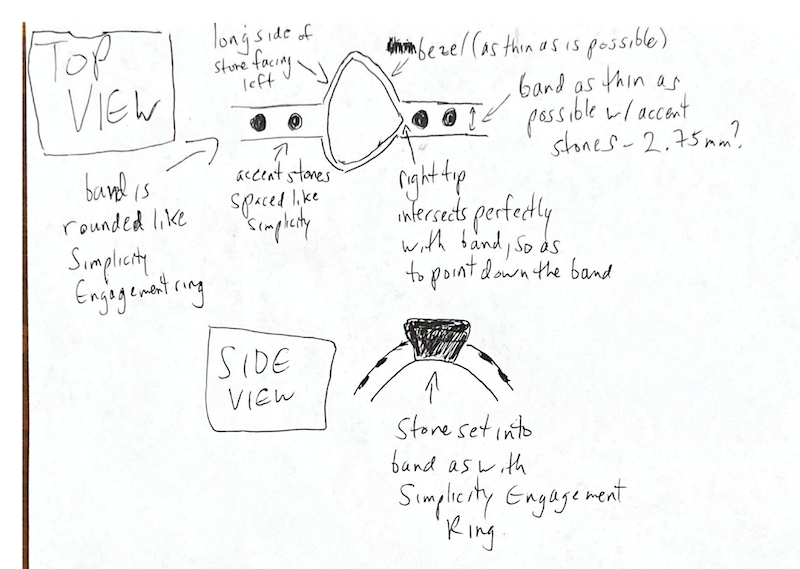 TOP
VIEW
long side of
stone facing
left
bezel (as thin as is possible)
band as thin as
possible w/ accent
stones - 2.75mm?
band is
rounded like
Simplicity
Engagement ring
accent stones
spaced like
Simplicity
right tip
intersects perfectly
with band, so as
to point down the band
SIDE
VIEW
Stone set into
band as with
Simplicity Engagement
Ring.